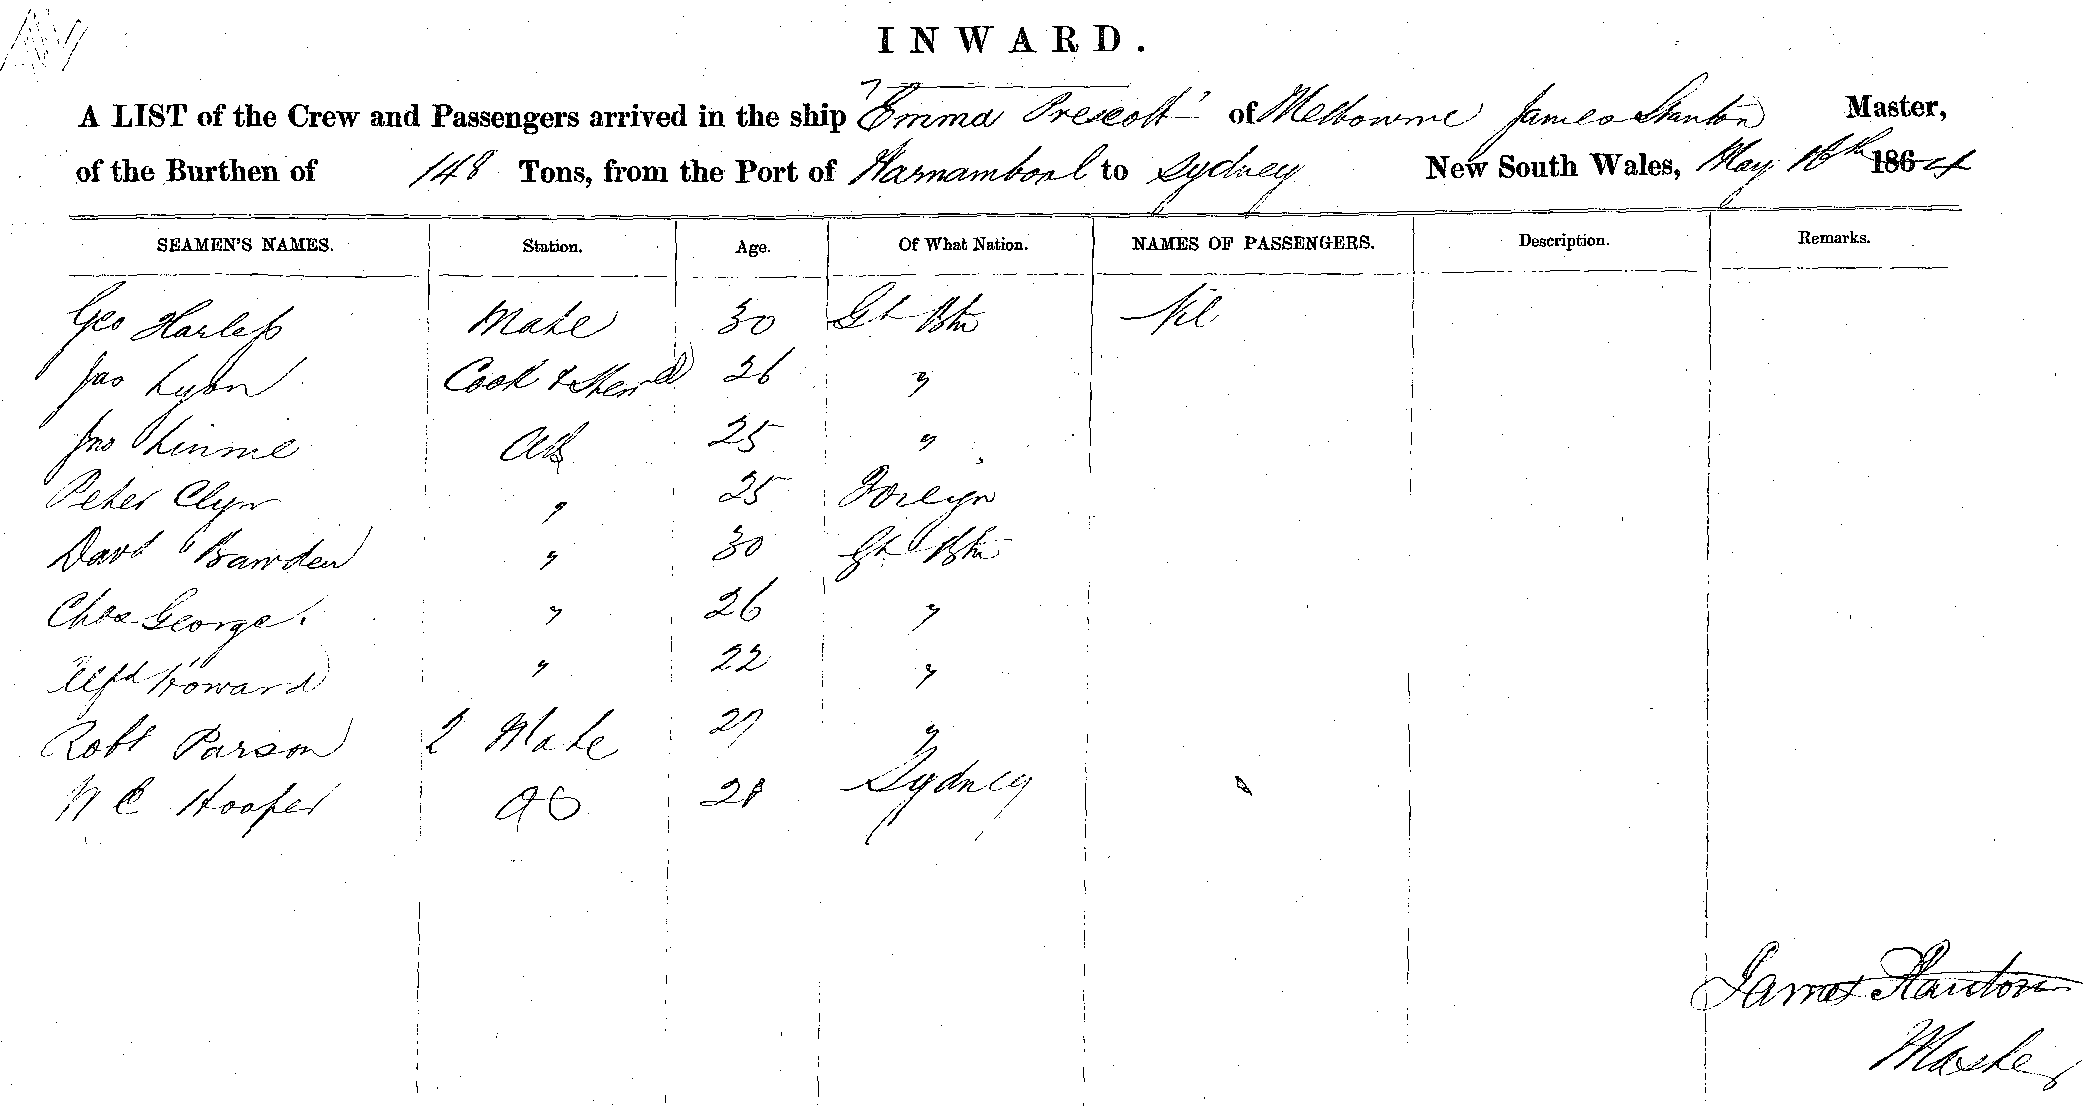 INWARD.
A LIST of the Crew and Passengers arrived in the ship "Emma Prescott" of Melbourne James Stanton Master,
of the Burthen of 148 Tons, from the Port of Warnambool to Sydney New South Wales, May 18th 1864
SEAMEN'S NAMES. Station. Age. Of What Nation. NAMES OF PASSENGERS. Description. Remarks.
Geo Harless Mate 30 Gt Btn Nil
Jas Lyon Cook & Stewd 26 "
Jno Linnie AB 25 "
Peter Clyn " 25 Foreign
Davd Bawden " 30 Gt Btn
Chas George. " 26 "
Alfd Howard " 22 "
Robt Parson 2 Mate 27 "
W C Hooper AB 28 Sydney
James Stanton
Master